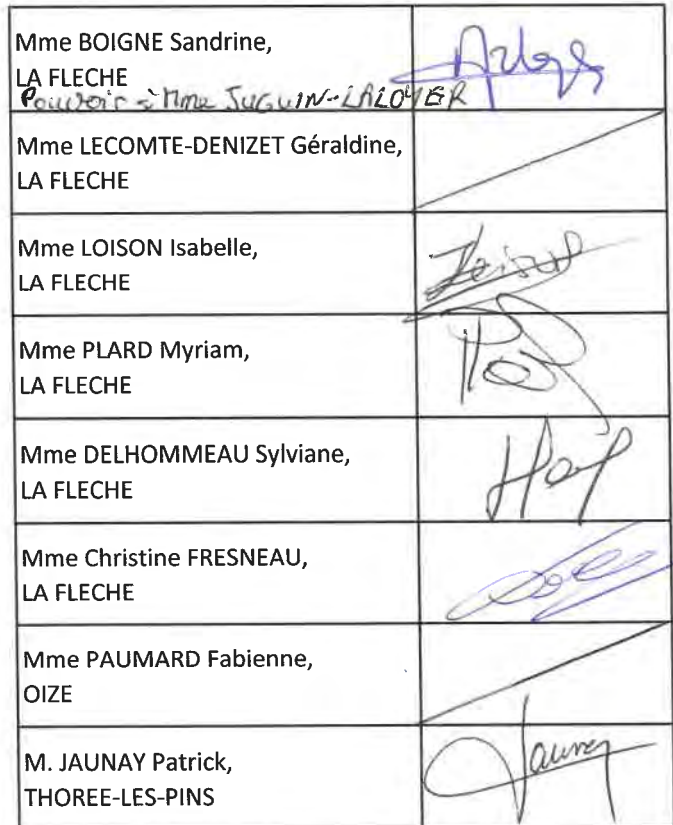 Mme BOIGNE Sandrine,
LA FLECHE
Pouvoir à Mme JUGUIN-LALOYER
Mme LECOMTE-DENIZET Géraldine,
LA FLECHE
Mme LOISON Isabelle,
LA FLECHE
Mme PLARD Myriam,
LA FLECHE
Mme DELHOMMEAU Sylviane,
LA FLECHE
Mme Christine FRESNEAU,
LA FLECHE
Mme PAUMARD Fabienne,
OIZE
M. JAUNAY Patrick,
THOREE-LES-PINS